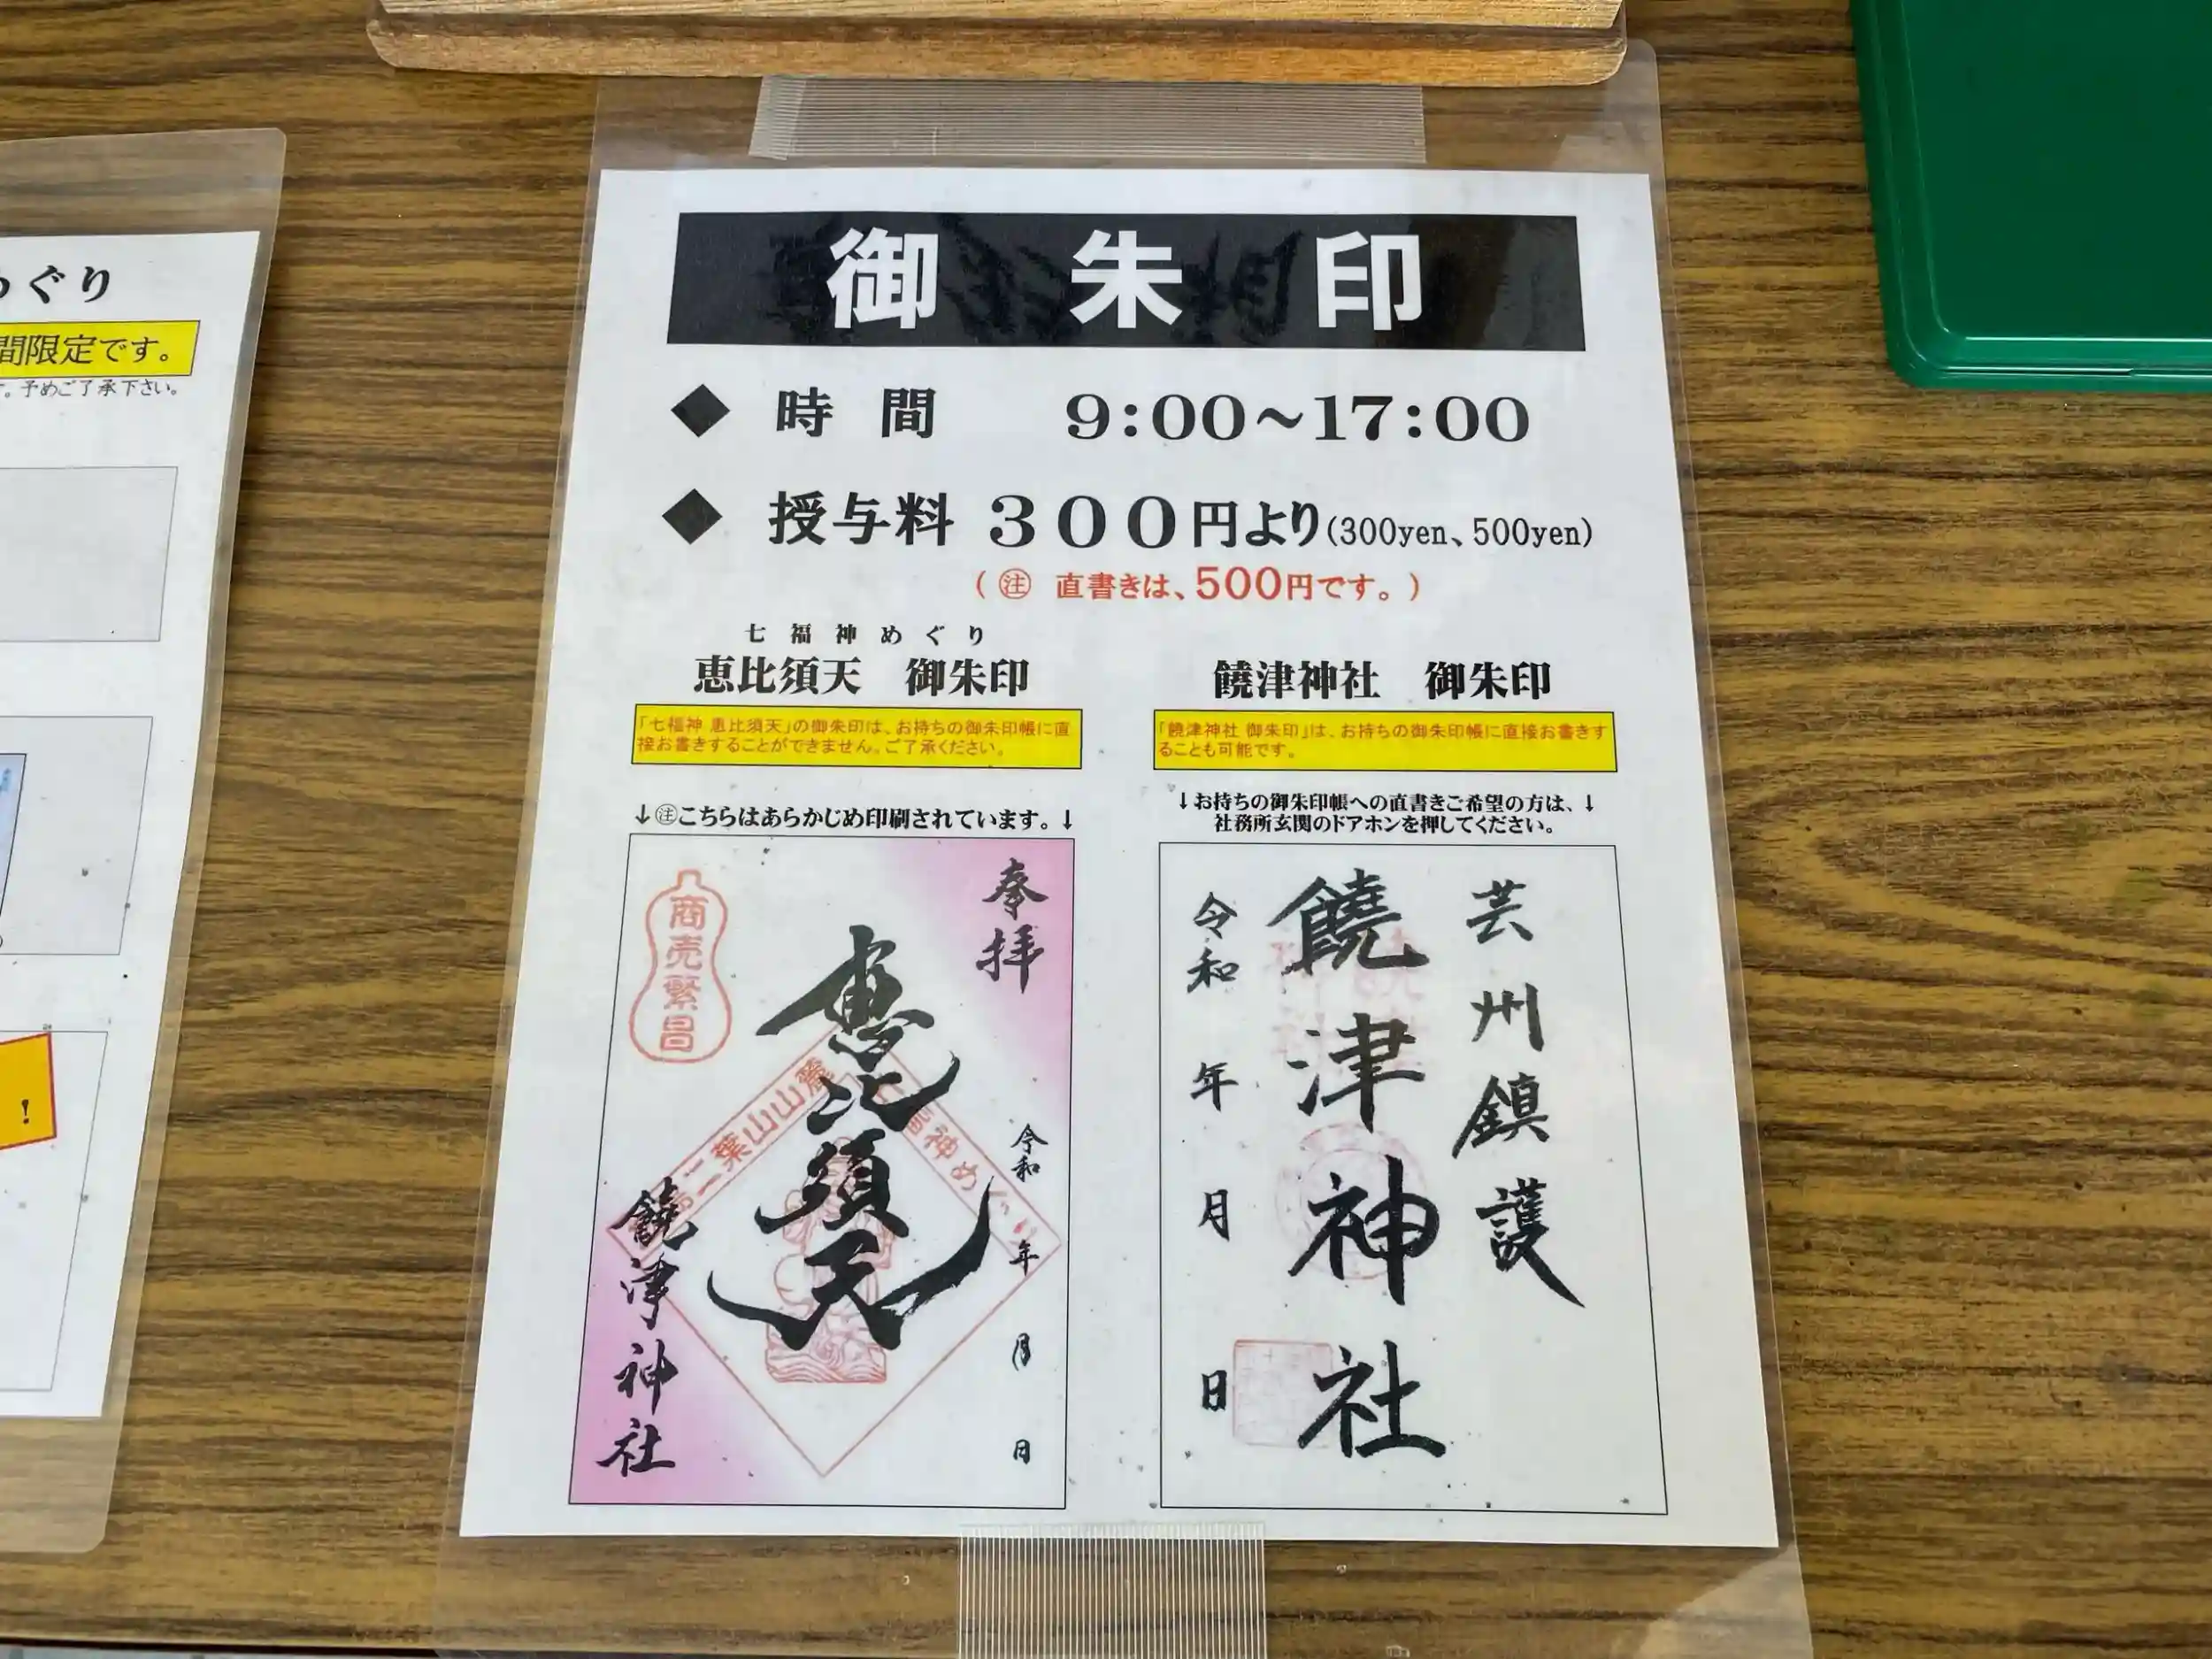 めぐり
間限定です。
す。予めご了承下さい。
!
御朱印
◆ 時間 9:00～17:00
◆ 授与料 300円より(300yen、500yen)
(㊟ 直書きは、500円です。)
七福神めぐり
恵比須天 御朱印
「七福神 恵比須天」の御朱印は、お持ちの御朱印帳に直
接お書きすることができません。ご了承ください。
↓㊟こちらはあらかじめ印刷されています。↓
奉拝
令和 年 月 日
恵比須天
商売繁昌
二葉山山麓
神めぐり
饒津神社
饒津神社 御朱印
「饒津神社 御朱印」は、お持ちの御朱印帳に直接お書きす
ることも可能です。
↓お持ちの御朱印帳への直書きご希望の方は、↓
社務所玄関のドアホンを押してください。
芸州鎮護
饒津神社
令和 年 月 日